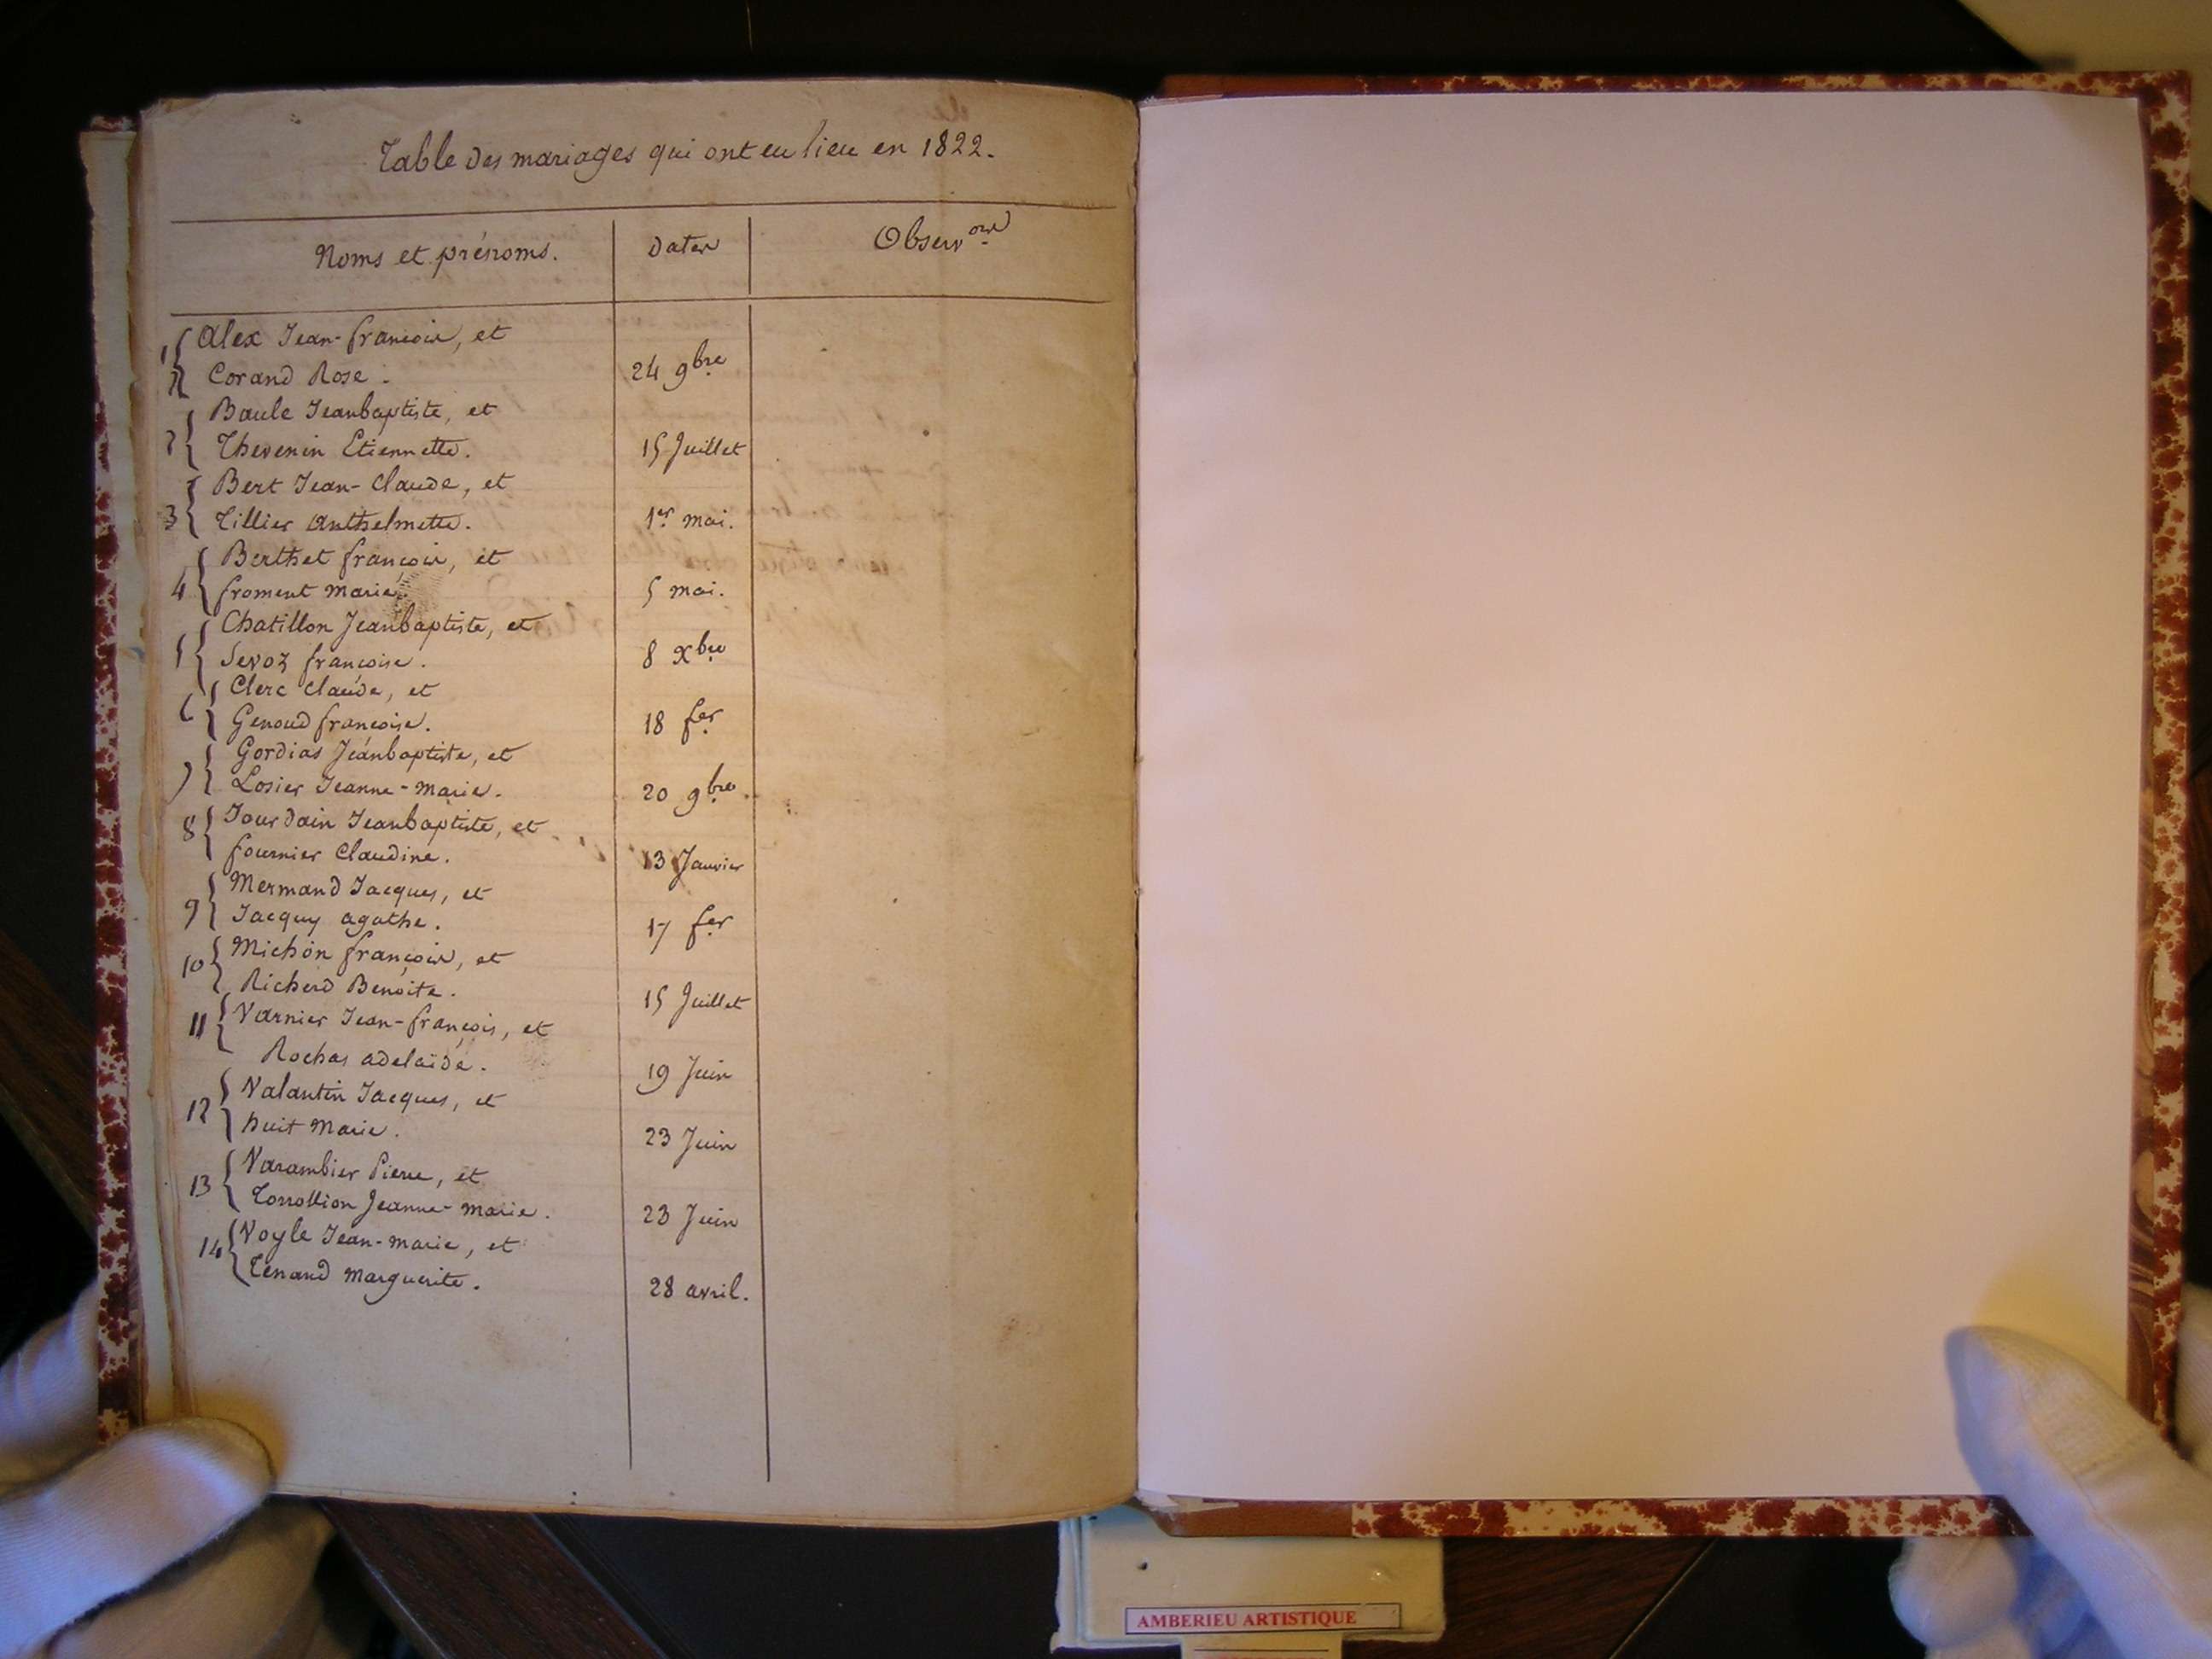 Table des mariages qui ont eu lieu en 1822.
Noms et prénoms.
Dates
Observ.ons
1 Alex Jean-françois, et
Corand Rose.
24 9bre
2 Baule Jeanbaptiste, et
Thevenin Etiennette.
15 Juillet
3 Bert Jean-Claude, et
Tillier Anthelmette.
1er mai.
4 Berthet françois, et
froment marie.
5 mai.
5 Chatillon Jeanbaptiste, et
Sevoz françoise.
8 Xbre
6 Clerc Claude, et
Genoud françoise.
18 fer
7 Gordias Jeanbaptiste, et
Losier Jeanne-marie.
20 9bre
8 Jourdain Jeanbaptiste, et
fournier Claudine.
13 Janvier
9 Mermand Jacques, et
Jacquy agathe.
17 fer
10 Michon françois, et
Richerd Benoite.
15 Juillet
11 Varnier Jean-françois, et
Rochas adelaïde.
19 Juin
12 Valantin Jacques, et
huit Marie.
23 Juin
13 Varambier Pierre, et
Jeanne-marie.
23 Juin
14 Voyle Jean-marie, et
Tenand marguerite.
28 avril.
AMBERIEU ARTISTIQUE